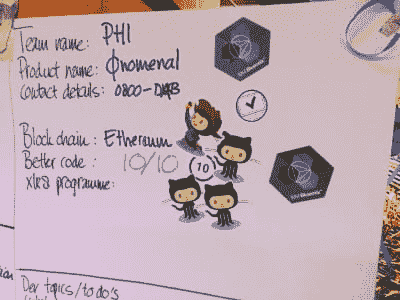 Team name: PHI
Product name: Φnomenal
Contact details: 0800-DAB
Block chain: Ethereum
Better code: 10/10
10
xlr8 programme:
Dev topics/to do's